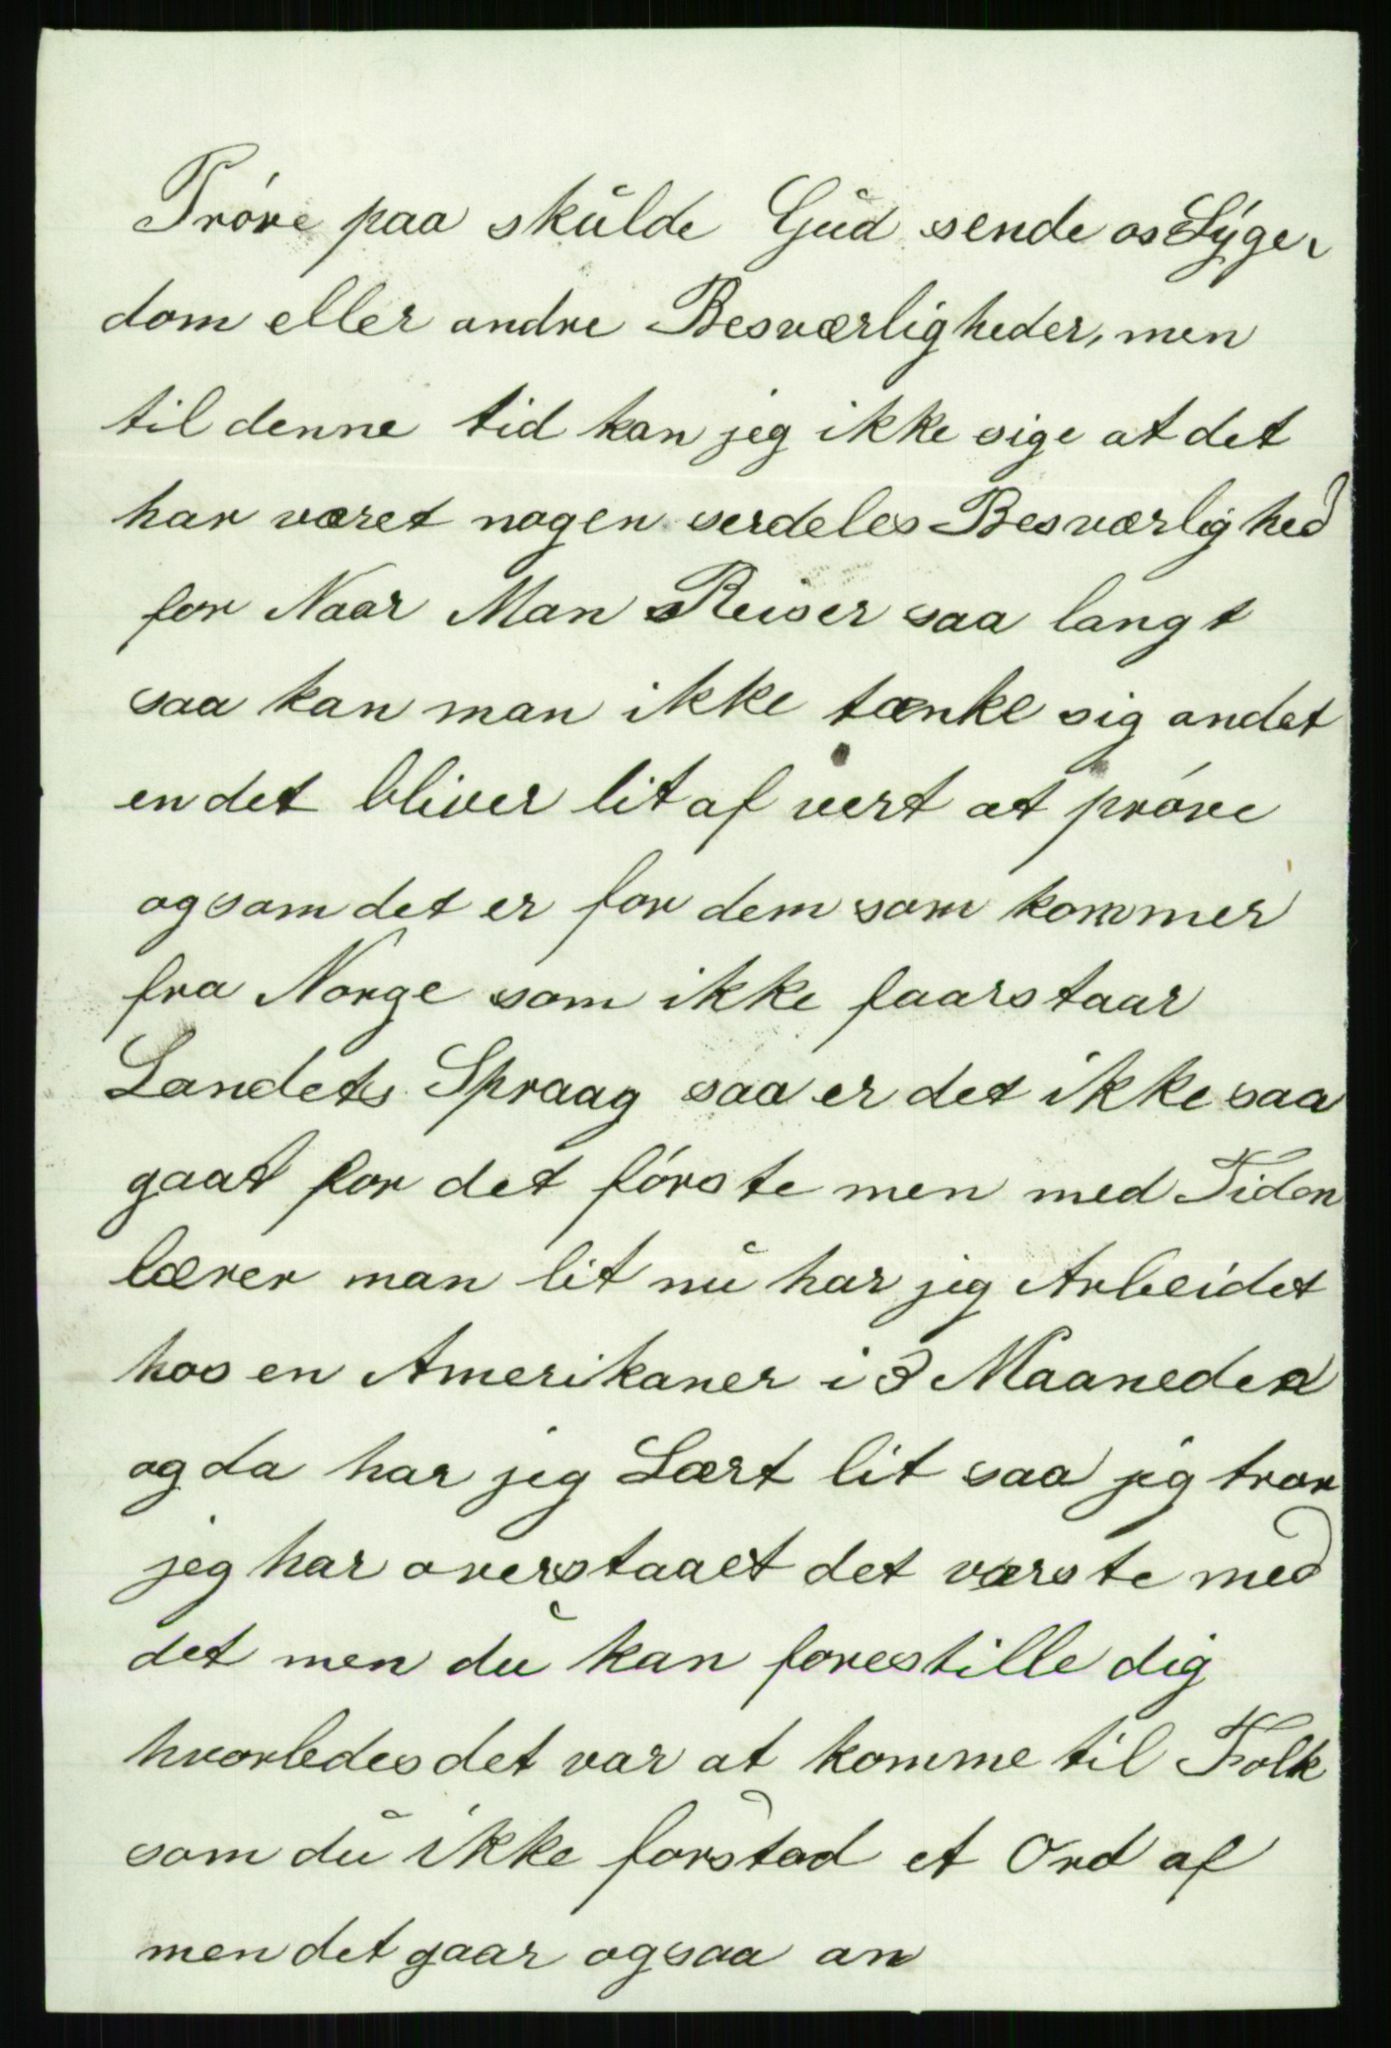 Prøve paa skulde Gud sende os Syge-
dom eller andre Besværligheder, men
til denne tid kan jeg ikke sige at det
har været nogen serdeles Besværlighed
for Naar Man Reiser saa langt
saa kan man ikke tænke sig andet
en det bliver lit af vert at prøve
og som det er for dem som kommer
fra Norge som ikke faarstaar
Landets Spraag saa er det ikke saa
gaat for det første men med Tiden
lærer man lit nu har jeg Arbeidet
hos en Amerikaner i 3 Maaneder
og da har jeg Lært lit saa jeg tror
jeg har overstaaet det værste med
det men du kan forestille dig
hvorledes det var at komme til Folk
som du ikke forstod et Ord af
men det gaar ogsaa an